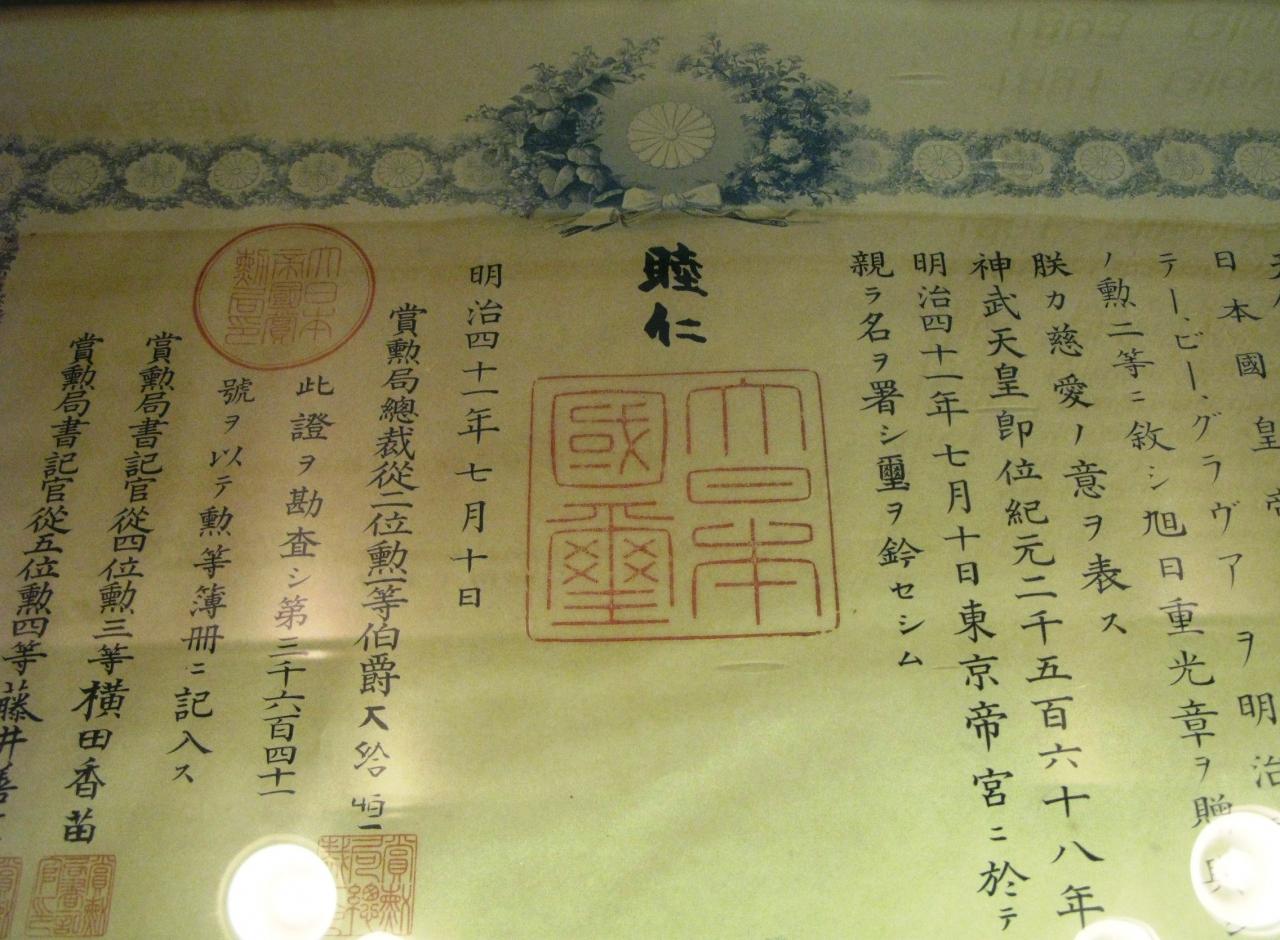 日本國皇帝
ヲ明治
テー、ビー、グラヴア
ノ勲二等ニ敘シ旭日重光章ヲ贈與シ
朕カ慈愛ノ意ヲ表ス
神武天皇即位紀元二千五百六十八年
明治四十一年七月十日東京帝宮ニ於テ
親ラ名ヲ署シ璽ヲ鈐セシム
睦仁
大日本國璽
明治四十一年七月十日
賞勲局總裁從二位勲一等伯爵大給恒
賞勲局總裁
此證ヲ勘査シ第三千六百四十一
號ヲ以テ勲等簿冊ニ記入ス
大日本帝國賞勲局印
賞勲局書記官從四位勲三等横田香苗
賞勲局書記官印
賞勲局書記官從五位勲四等藤井善